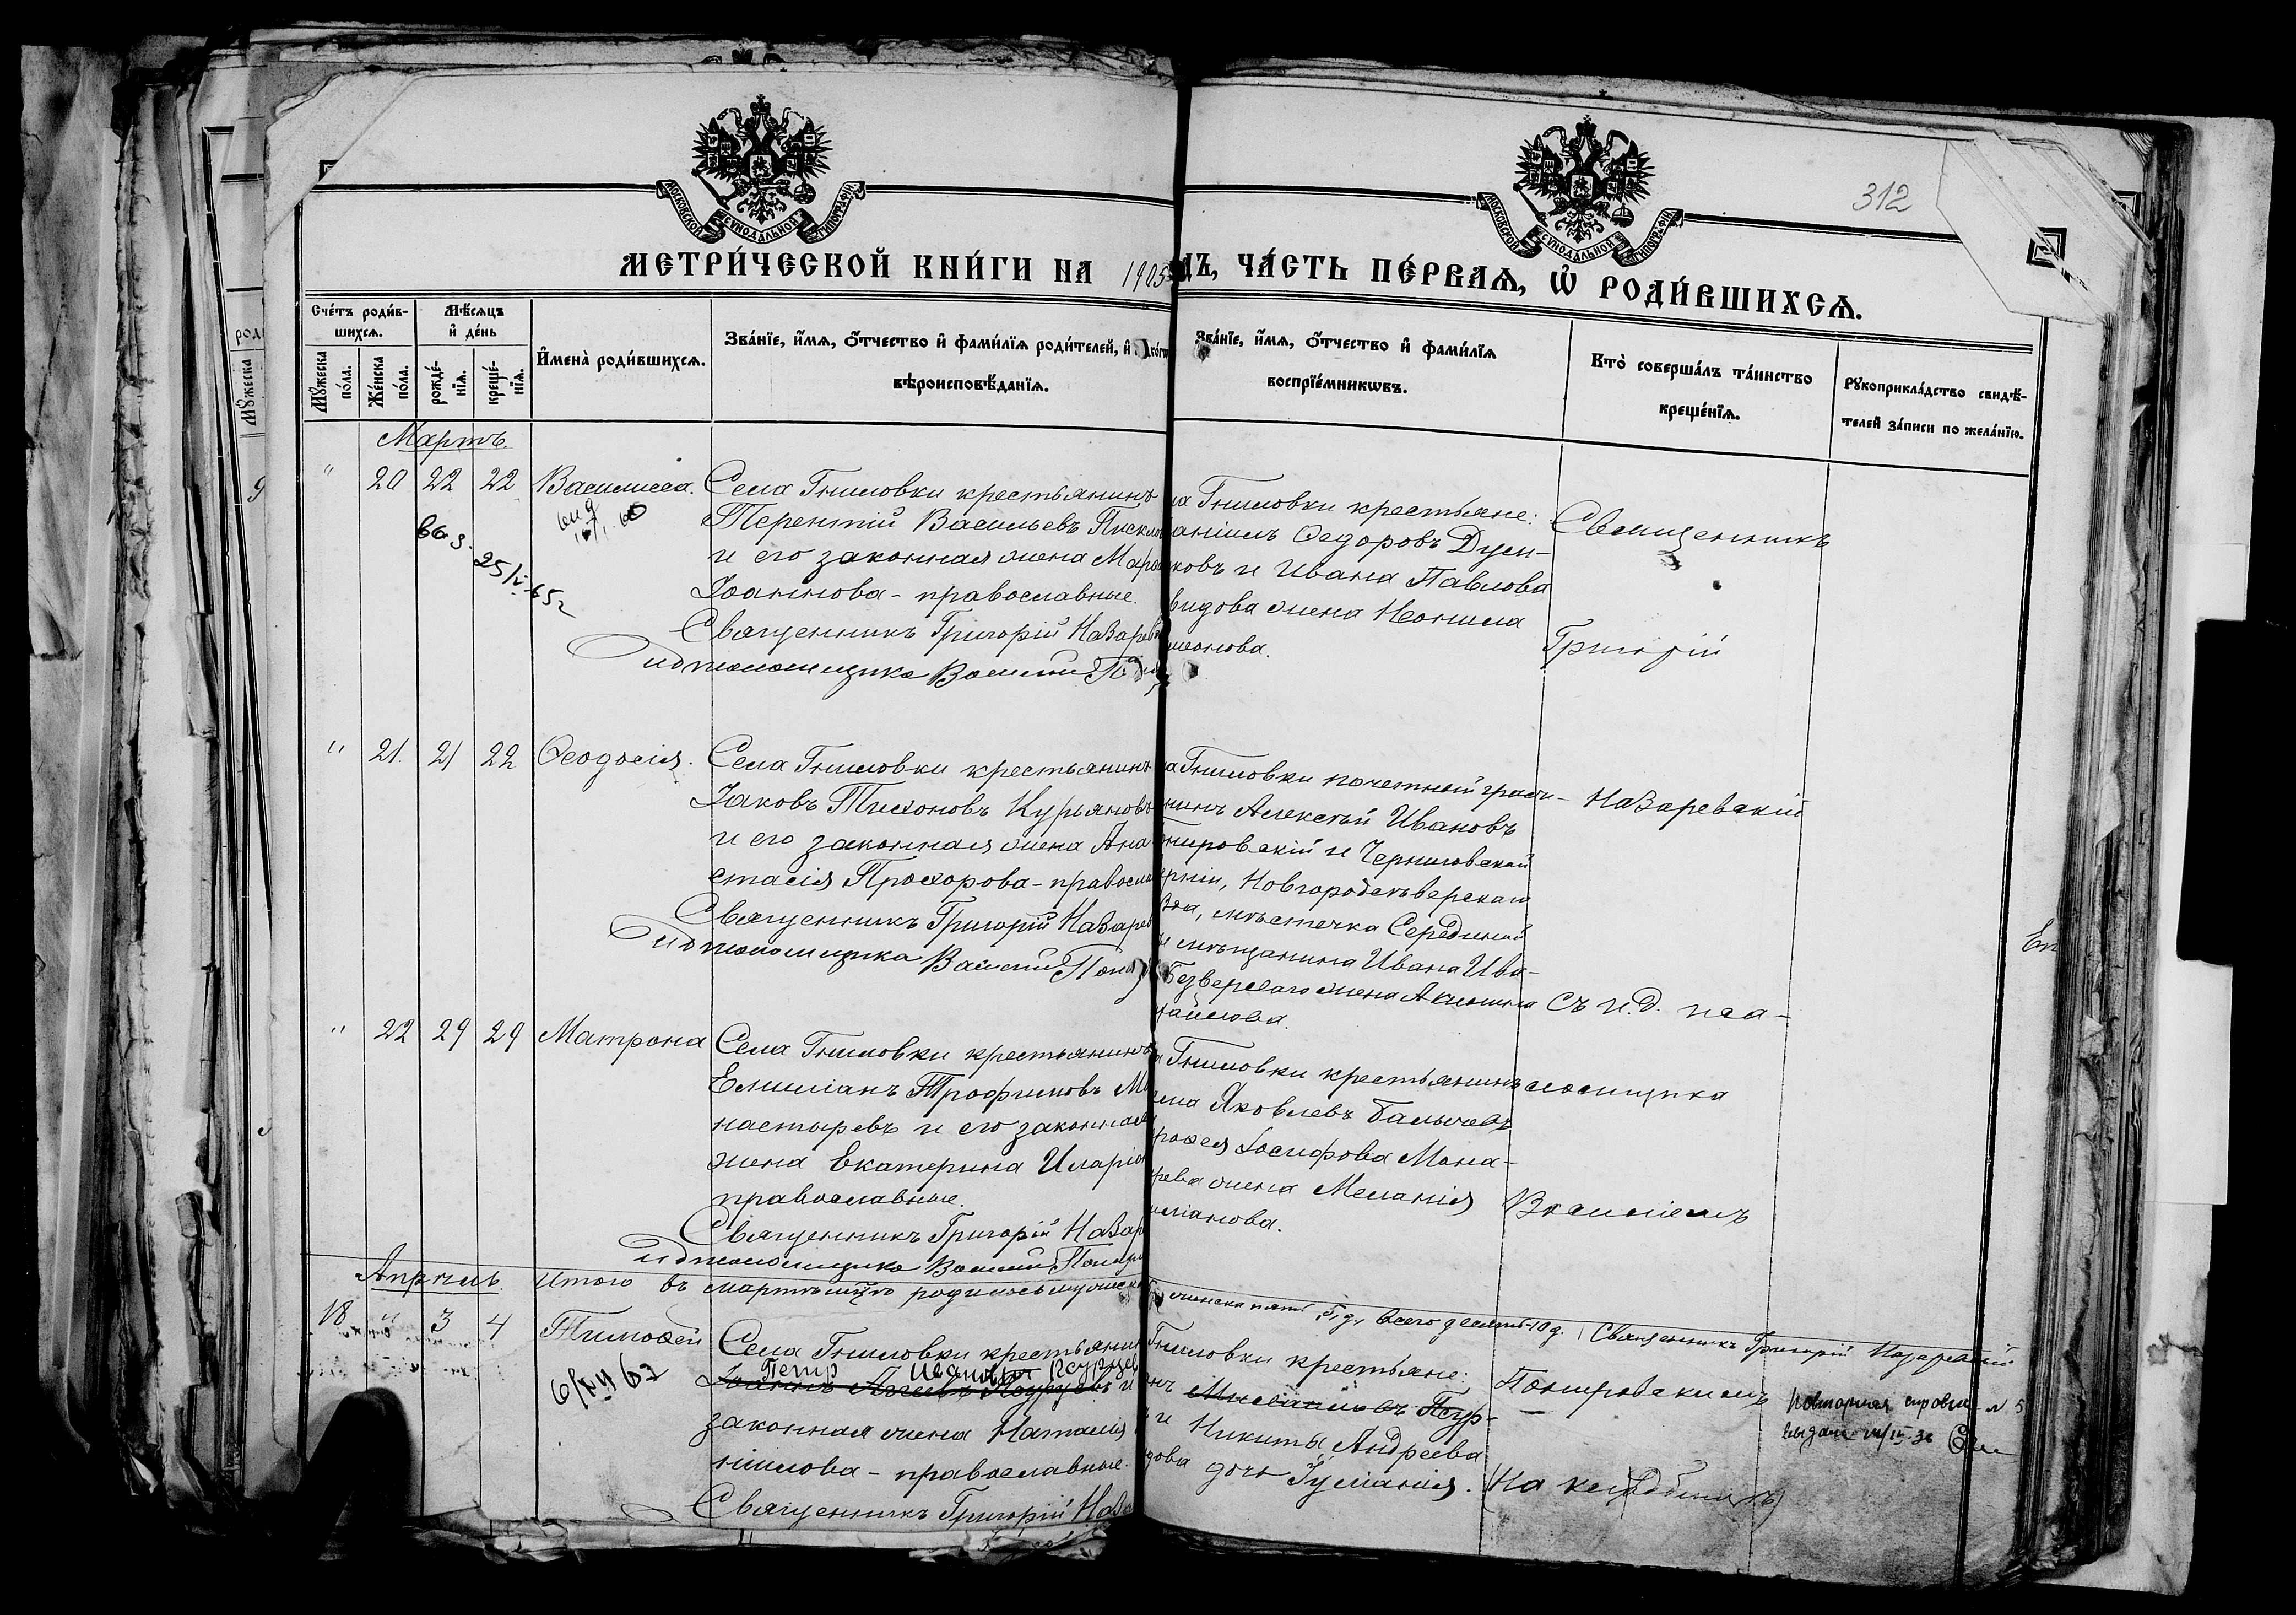 312
МОСКОВСКОЙ СѴНОДАЛЬНОЙ ТИПОГРАФІИ
МОСКОВСКОЙ СѴНОДАЛЬНОЙ ТИПОГРАФІИ
МЕТРИ́ЧЕСКОЙ КНИ́ГИ НА 1905
ДЪ, ЧА́СТЬ ПЕ́РВАѦ, Ѡ҆ РОДИ́ВШИХСѦ.
Сче́тъ роди́в-
шихся.
Мꙋ́жеска
по́ла.
Же́нска
по́ла.
Мѣ́сяцъ
и҆ де́нь
рожде́-
нїя.
креще́-
нїя.
И҆мена̀ роди́вшихся.
Зва́нїе, и҆́мя, ѻ҆́тчество и҆ фами́лїя роди́телей, и҆
вѣроисповѣ́данїя.
Зва́нїе, и҆́мя, ѻ҆́тчество и҆ фами́лїя
воспрїе́мникѡвъ.
Кто̀ соверша́лъ та́инство
креще́нїя.
Рꙋкоприкла́дство свидѣ́-
телей за́писи по жела́нїю.
Мартъ.
" 20 22 22 Василисса.
Села Гниловки крестьянинъ
Терентій Васильевъ
и его законная жена
Іоаннова - православные.
Священникъ Григорій Назарев
псаломщика Василій
25/V-65г
ла Гниловки крестьяне:
аніилъ Ѳедоровъ Дуди-
ковъ и Ивана Павлова
видова жена Неонила
меонова.
Священникъ
Григорій
" 21. 21 22 Ѳеодосія.
Села Гниловки крестьянинъ
Іаковъ Тихоновъ Курьяновъ
и его законная жена Ана
стасія Прохорова - правосла
Священникъ Григорій Назарев
псаломщика Василій
а Гниловки почетный граж-
нинъ Алексѣй Ивановъ
нировскій и Черниговской
ерніи, Новгородсѣверскаго
зда, мѣстечка Серединой
мѣщанина Ивана Ива-
жена
хайлова.
Назаревскій
съ и.д. пса-
" 22 29 29 Матрона
Села Гниловки крестьянинъ
Емиліанъ Трофимовъ Мо
настыревъ и его законная
жена Екатерина Иларіо
православные.
Священникъ Григорій Назар
псаломщика Василій
Гниловки крестьянинъ
Яковлевъ
рофея Іосифова Мона-
рева жена Меланія
иліанова.
ломщика
Василіемъ
Апрѣль.
Итого въ мартѣ мцѣ родилось мужеска
женска пять 5, д., всего десять 10 д. Священникъ Григорій Назаревскій
18 " 3 4 Тимоѳей
Села Гниловки крестьянин
Петр Иванович
законная жена Наталія
ніилова - православные.
Священникъ Григорій Наза
Гниловки крестьяне:
и Никиты Андреева
дочь Іуліанія.
Понировскимъ
Повторная справка № 5